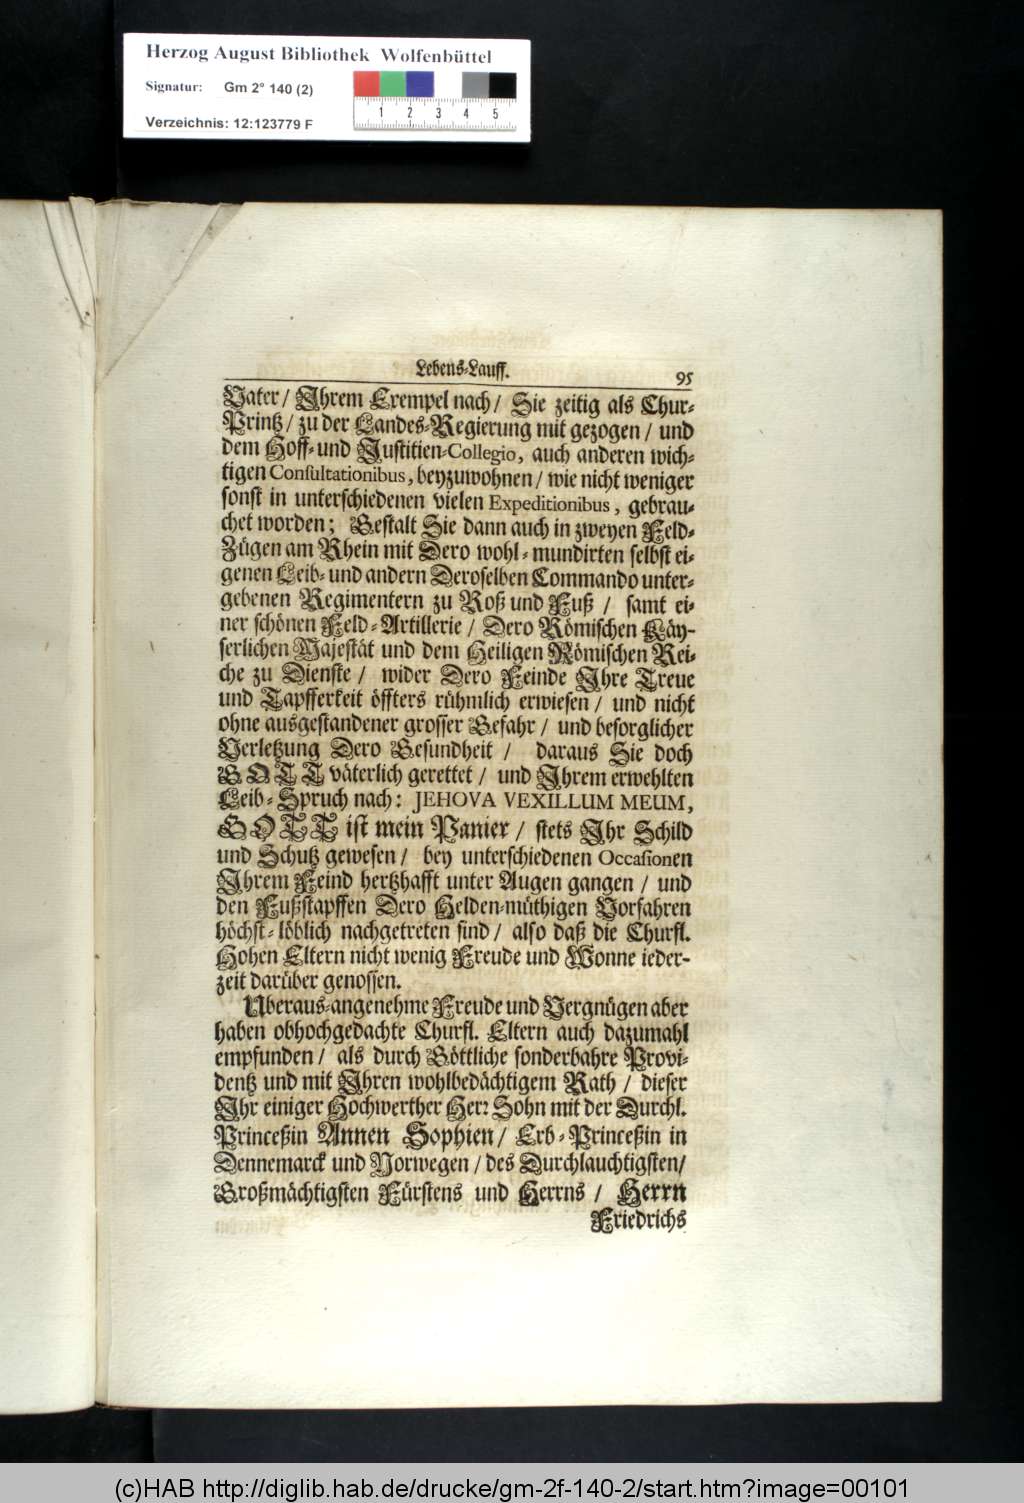 Herzog August Bibliothek Wolfenbüttel
Signatur: Gm 2° 140 (2)
Verzeichnis: 12:123779 F
1 2 3 4 5
Lebens-Lauff.
95
Vater / Ihrem Exempel nach / Sie zeitig als Chur-
Printz / zu der Landes-Regierung mit gezogen / und
dem Hoff- und Justitien-Collegio, auch anderen wich-
tigen Consultationibus, beyzuwohnen / wie nicht weniger
sonst in unterschiedenen vielen Expeditionibus, gebrau-
chet worden; Gestalt Sie dann auch in zweyen Feld-
Zügen am Rhein mit Dero wohl-mundirten selbst ei-
genen Leib- und andern Deroselben Commando unter-
gebenen Regimentern zu Roß und Fuß / samt ei-
ner schönen Feld-Artillerie / Dero Römischen Käy-
serlichen Majestät und dem Heiligen Römischen Rei-
che zu Dienste / wider Dero Feinde Ihre Treue
und Tapfferkeit öffters rühmlich erwiesen / und nicht
ohne ausgestandener grosser Gefahr / und besorglicher
Verletzung Dero Gesundheit / daraus Sie doch
GOTT väterlich gerettet / und Ihrem erwehlten
Leib-Spruch nach: JEHOVA VEXILLUM MEUM,
GOTT ist mein Panier / stets Ihr Schild
und Schutz gewesen / bey unterschiedenen Occasionen
Ihrem Feind hertzhafft unter Augen gangen / und
den Fußstapffen Dero Helden-müthigen Vorfahren
höchst-löblich nachgetreten sind / also daß die Churfl.
Hohen Eltern nicht wenig Freude und Wonne ieder-
zeit darüber genossen.
Uberaus-angenehme Freude und Vergnügen aber
haben obhochgedachte Churfl. Eltern auch dazumahl
empfunden / als durch Göttliche sonderbahre Provi-
dentz und mit Ihren wohlbedächtigem Rath / dieser
Ihr einiger Hochwerther Herr Sohn mit der Durchl.
Princeßin Annen Sophien / Erb-Princeßin in
Dennemarck und Norwegen / des Durchlauchtigsten /
Großmächtigsten Fürstens und Herrns / Herrn
Friedrichs
(c)HAB http://diglib.hab.de/drucke/gm-2f-140-2/start.htm?image=00101